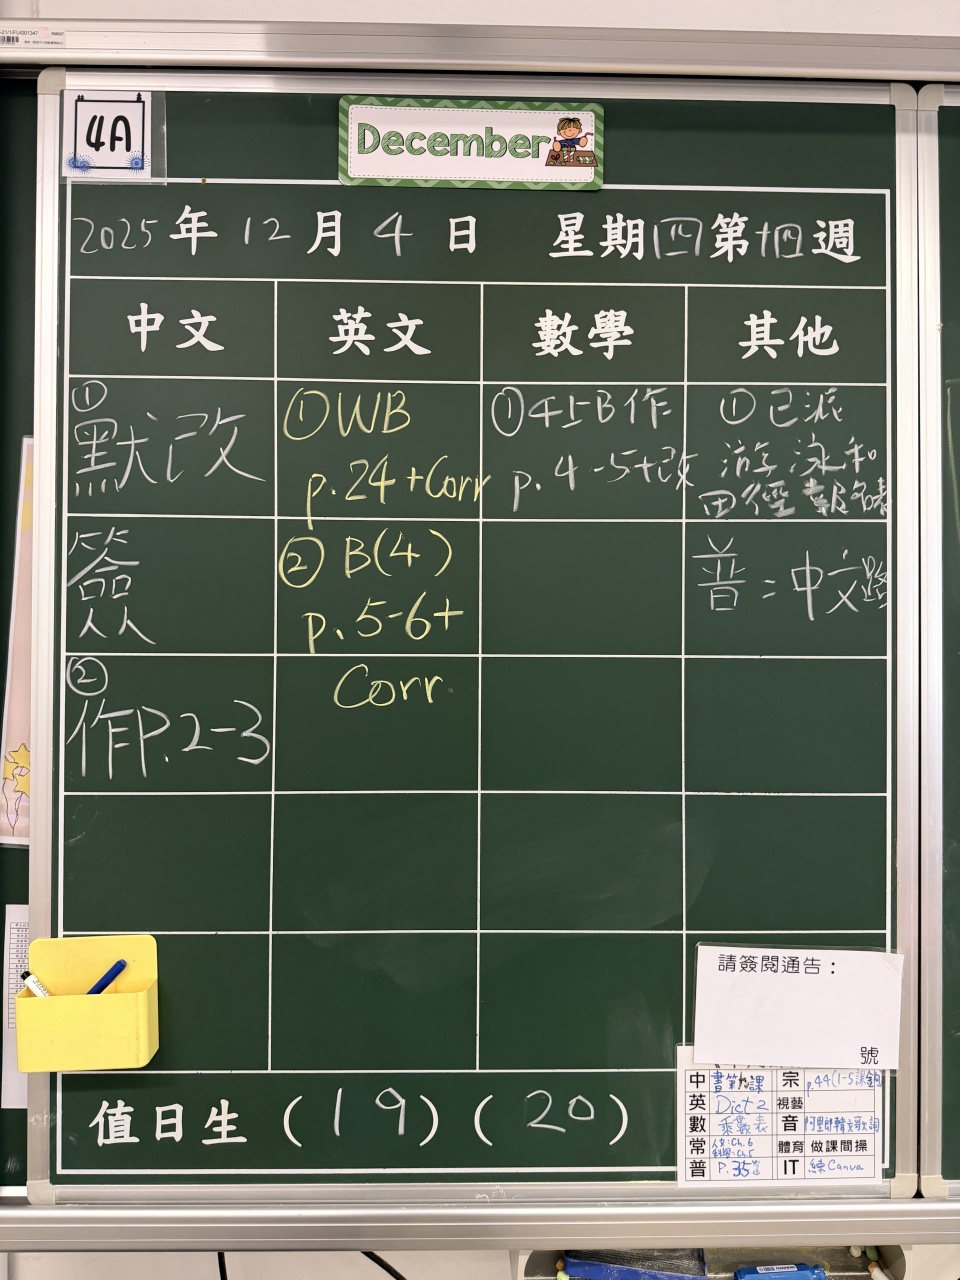 4A
December
2025年12月4日 星期四第十四週
中文
英文
數學
其他
①
默改
簽
②
作P.2-3
①WB
p.24+Corr
②B(4)
p.5-6+
Corr
①4上B作
p.4-5+改
①已派
游泳和
田徑報名表
普=中文路
請簽閱通告：
號
中 書第九課
宗 p.44(1-5課
英 Dict 2
視藝
數 乘數表
音 阿里郎韓文歌詞
常 人文:Ch.6
科學:Ch.5
體育 做課間操
普 P.35
IT 練Canva
值日生(19)(20)